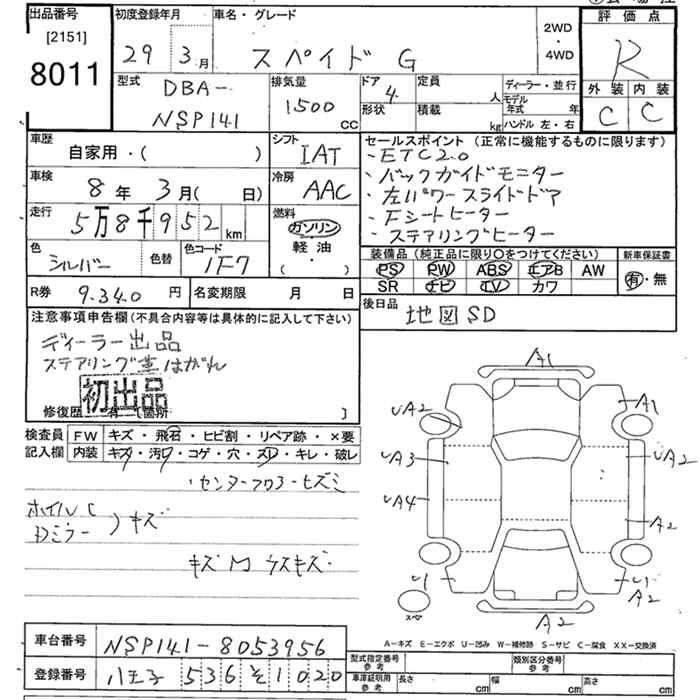 出品番号
[2151]
8011
初度登録年月
29 3月
車名・グレード
スペイド G
2WD
・
4WD
評価点
R
外装 内装
C C
型式
DBA-
NSP141
排気量
1500
CC
ドア
4
形状
定員
人
積載
kg
ディーラー・並行
モデル年式 年
ハンドル 左・右
車歴
自家用・( )
シフト
IAT
車検
8年 3月( 日)
冷房
AAC
走行
5万8千952km
燃料
ガソリン
軽油
( ・ )
色
シルバー
色替
色コード
1F7
R券 9.340 円
名変期限 月 日
セールスポイント (正常に機能するものに限ります)
・ETC2.0
・バックガイドモニター
・左パワースライドドア
・Fシートヒーター
・ステアリングヒーター
装備品 (純正品に限り○をつけてください)
新車保証書
PS PW ABS エアB AW
SR ナビ TV カワ
有・無
後日品
地図SD
注意事項申告欄(不具合内容等は具体的に記入して下さい)
ディーラー出品
ステアリング革はがれ
初出品
修復歴 有 [箇所 ]
検査員
記入欄
FW キズ・飛石・ヒビ割・リペア跡・×要
内装 キズ・汚ワ・コゲ・穴・スレ・キレ・破レ
・センターフロアーヒズミ
ホイルC
Dミラー
)キズ
キズM ウスキズ・
A1
UA2
A1
UA3
UA2
UA4
A2
U1
U1
A2
スペア
A2
A-キズ E-エクボ U-凹み W-補修跡 S-サビ C-腐食 XX-交換済
車台番号
NSP141-8053956
登録番号
八王子 536 そ 1020
型式指定番号
参考
類別区分番号
参考
車庫証明用
参考
長さ cm
幅 cm
高さ cm